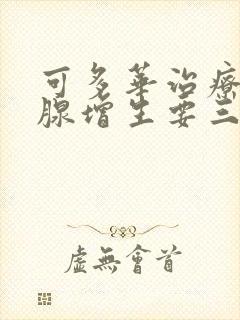 可多華治療
腺增生要三
虛無會首